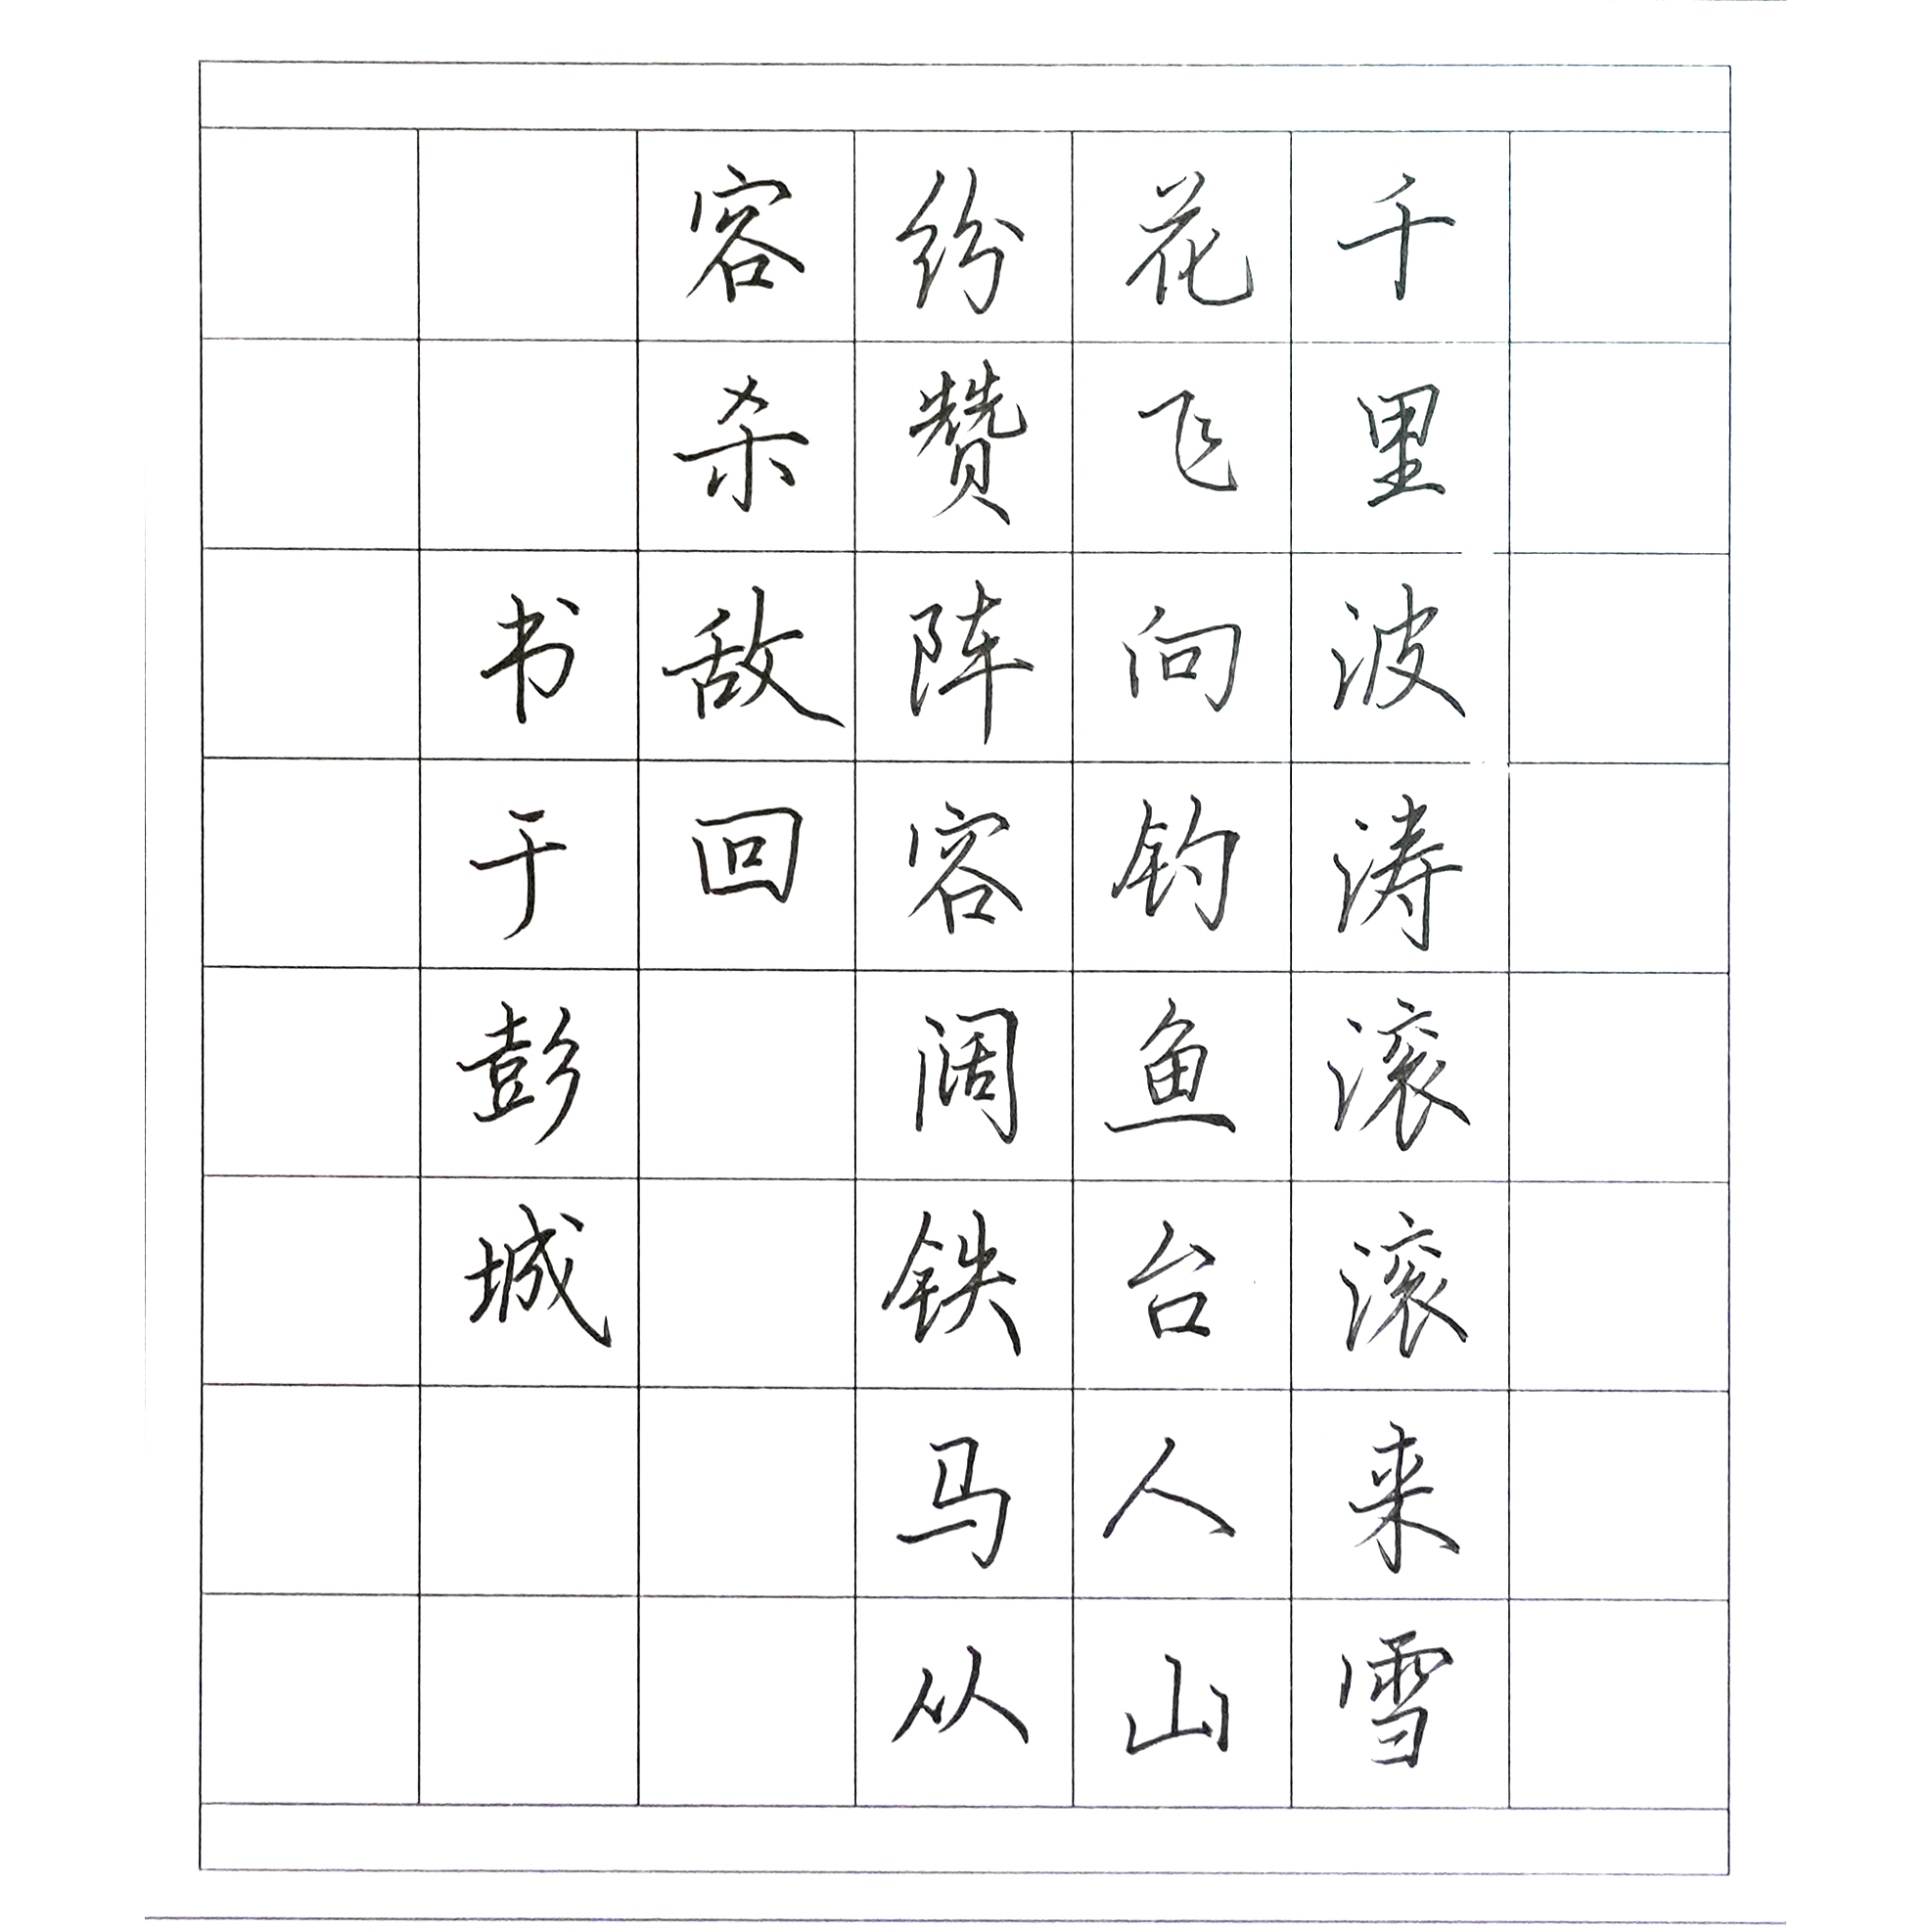 千里波涛滚滚来雪
花飞向钓鱼台人山
纷赞阵容阔铁马从
容杀敌回
书于彭城